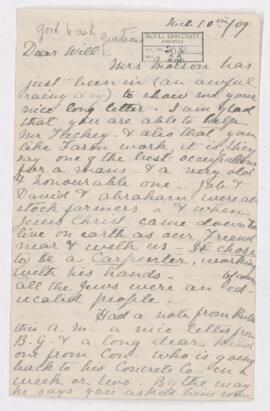 Oct. 10th/09
good & ask questions
McGILL UNIVERSITY
ARCHIVES
Dear Will/
Mrs Molson has
just been in (an awful
rainy day) to show me your
nice long letter. I am glad
that you are able to help
Mr & also that you
like Farm work it is, they
say one of the best occupations
for a man & a very old
& honourable one. Job &
David & Abraham were all
stock farmers — & when
Jesus Christ came down to
live on earth as our Friend
near & with us — He chose
to be a Carpenter, working
with his hands — of course
all the Jews were an ed-
ucated people.
Had a note from Ruth
this a.m. a nice letter from
B.G. & a long dear
one from Con. who is going
back to his Concrete Co. in a
week or two. By the way
he says you asked him some